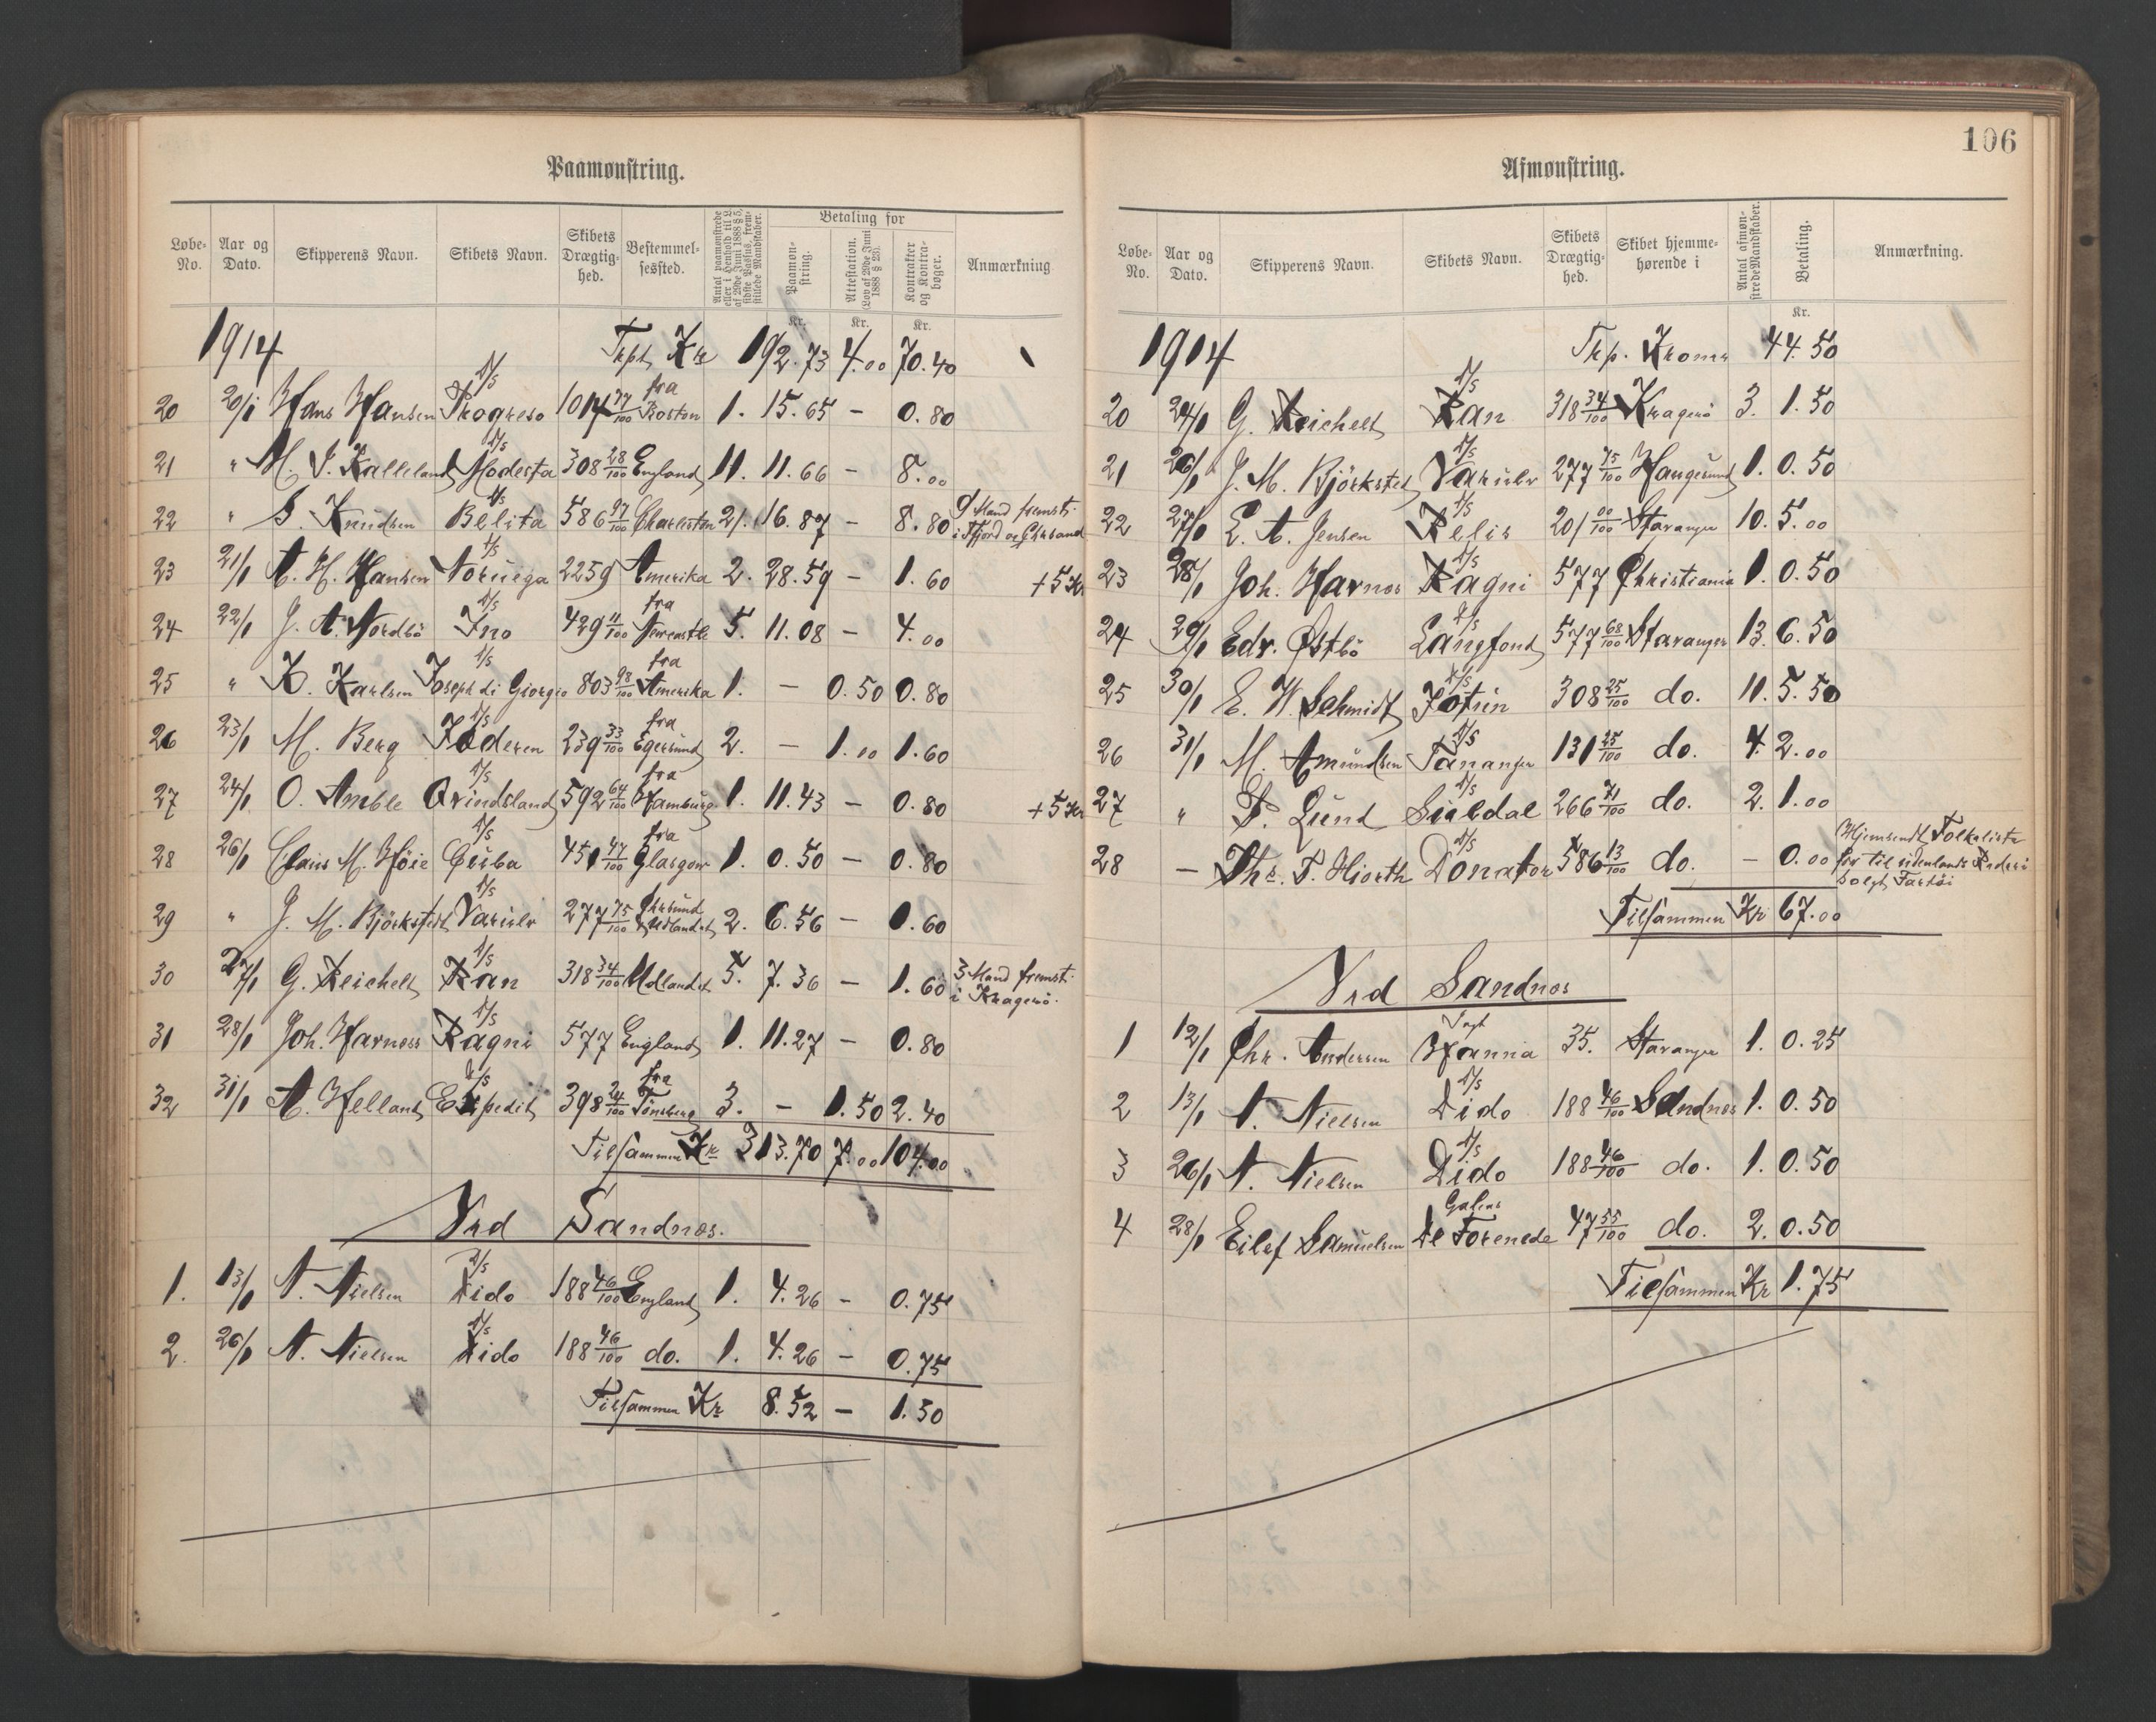 Paamønstring.
Løbe-No. Aar og Dato. Skipperens Navn. Skibets Navn. Skibets Drægtighed. Bestemmelsessted. Antal paamønstrede eller i Henhold til L. af 29de Juni 1888 § 5, sidste Passus, fremstillede Mandskaber. Betaling for Paamønstring. Attestation. (Lov af 29de Juni 1888 § 23). Kontrakter og Kontrabøger. Anmærkning
Kr. Kr. Kr.
1914 Trpt. Kr 192.73 4.00 70.40
20 20/1 Hans Hansen D/S Progreso 1014 77/100 fra Boston 1. 15.65 – 0.80
21 " M. J. Kalleland D/S Modesta 308 28/100 England 11. 11.66 – 8.00
22 " S. Knudsen D/S Belita 586 97/100 Charleston 21. 16.87 – 8.80 9 Mand fremst. i Tfjord og Chrsand
23 21/1 A. H. Hansen D/S Noruega 2259 Amerika 2. 28.59 – 1.60 + 5 Kr
24 22/1 J. A. Nordbö D/S Ino 429 11/100 fra Newcastle 5. 11.08 – 4.00
25 " K. Karlsen D/S Joseph di Giorgio 803 98/100 fra Amerika 1. – 0.50 0.80
26 23/1 M. Berg D/S Jæderen 239 33/100 fra Egersund 2. – 1.00 1.60
27 24/1 O. Amble D/S Qvindsland 592 64/100 fra Hamburg 1. 11.43 – 0.80 + 5 Kr
28 26/1 Claus M. Höie D/S Cuba 451 47/100 fra Glasgow 1. 0.50 – 0.80
29 " J. M. Björkstedt D/S Varulv 277 75/100 Chrsund Udlandet 2. 6.56 – 1.60
30 27/1 G. Reichelt D/S Ran 318 34/100 Udlandet 5. 7.36 – 1.60 3 Mand fremst. i Kragerö.
31 28/1 Joh. Harness D/S Ragni 577 England 1. 11.27 – 0.80
32 31/1 A. Helland D/S Expedit 398 24/100 fra Tönsberg 3. – 1.50 2.40
Tilsammen Kr 313.70 7.00 104.00
Ved Sandnes.
1. 13/1 N. Nielsen D/S Dido 188 46/100 England 1. 4.26 – 0.75
2. 26/1 N. Nielsen D/S Dido 188 46/100 do. 1. 4.26 – 0.75
Tilsammen Kr 8.52 – 1.50
106
Afmønstring.
Løbe-No. Aar og Dato. Skipperens Navn. Skibets Navn. Skibets Drægtighed. Skibet hjemmehørende i Antal afmønstrede Mandskaber. Betaling. Anmærkning.
Kr.
1914 Trp. Kroner 44.50
20 24/1 G. Reichelt D/S Ran 318 34/100 Kragerö 3. 1.50
21 26/1 J. M. Björkstedt D/S Varulv 277 75/100 Haugesund 1. 0.50
22 27/1 E. A. Jensen D/S Relis 201 00/100 Stavanger 10. 5.00
23 28/1 Joh. Harness D/S Ragni 577 Christiania 1. 0.50
24 29/1 Edv. Østbö D/S Langfond 577 68/100 Stavanger 13. 6.50
25 30/1 E. W. Schmidt D/S Jotun 308 25/100 do. 11. 5.50
26 31/1 M. Amundsen D/S Tananger 131 25/100 do. 4. 2.00
27 " F. Lund D/S Suldal 266 71/100 do. 2. 1.00
28 – Thr. T. Hiorth D/S Donator 586 13/100 do. – 0.00 Hjemsendt Folkeliste for til udenlandsk Rederi solgt Fartöi
Tilsammen Kr 67.00
Ved Sandnes
1 12/1 Chr. Andersen Jagt Hanna 35. Stavanger 1. 0.25
2 13/1 N. Nielsen D/S Dido 188 46/100 Sandnes 1. 0.50
3 26/1 N. Nielsen D/S Dido 188 46/100 do. 1. 0.50
4 28/1 Eilef Samuelsen Galeas De Forenede 47 55/100 do. 2. 0.50
Tilsammen Kr 1.75